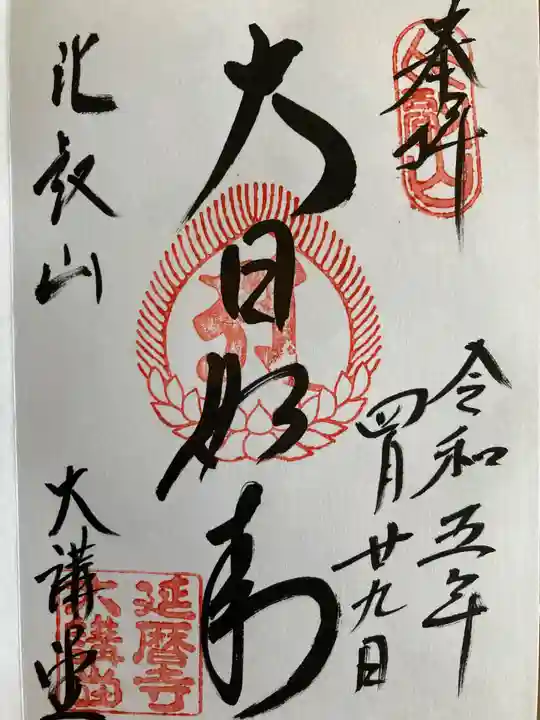 奉拝
令和五年
四月廿九日
大日如来
比叡山
大講堂
比叡山
延暦寺
大講堂